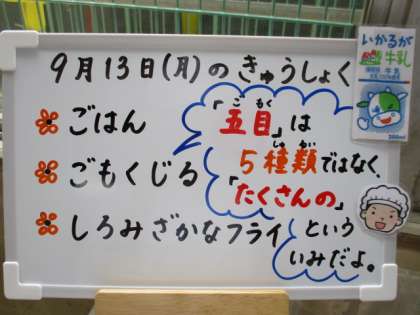 9月13日(月)のきゅうしょく
ごはん
ごもくじる
しろみざかなフライ
ごもく
「五目」は
しゅるい
5種類ではなく、
「たくさんの」
という
いみだよ。
いかるが
牛乳
200ml